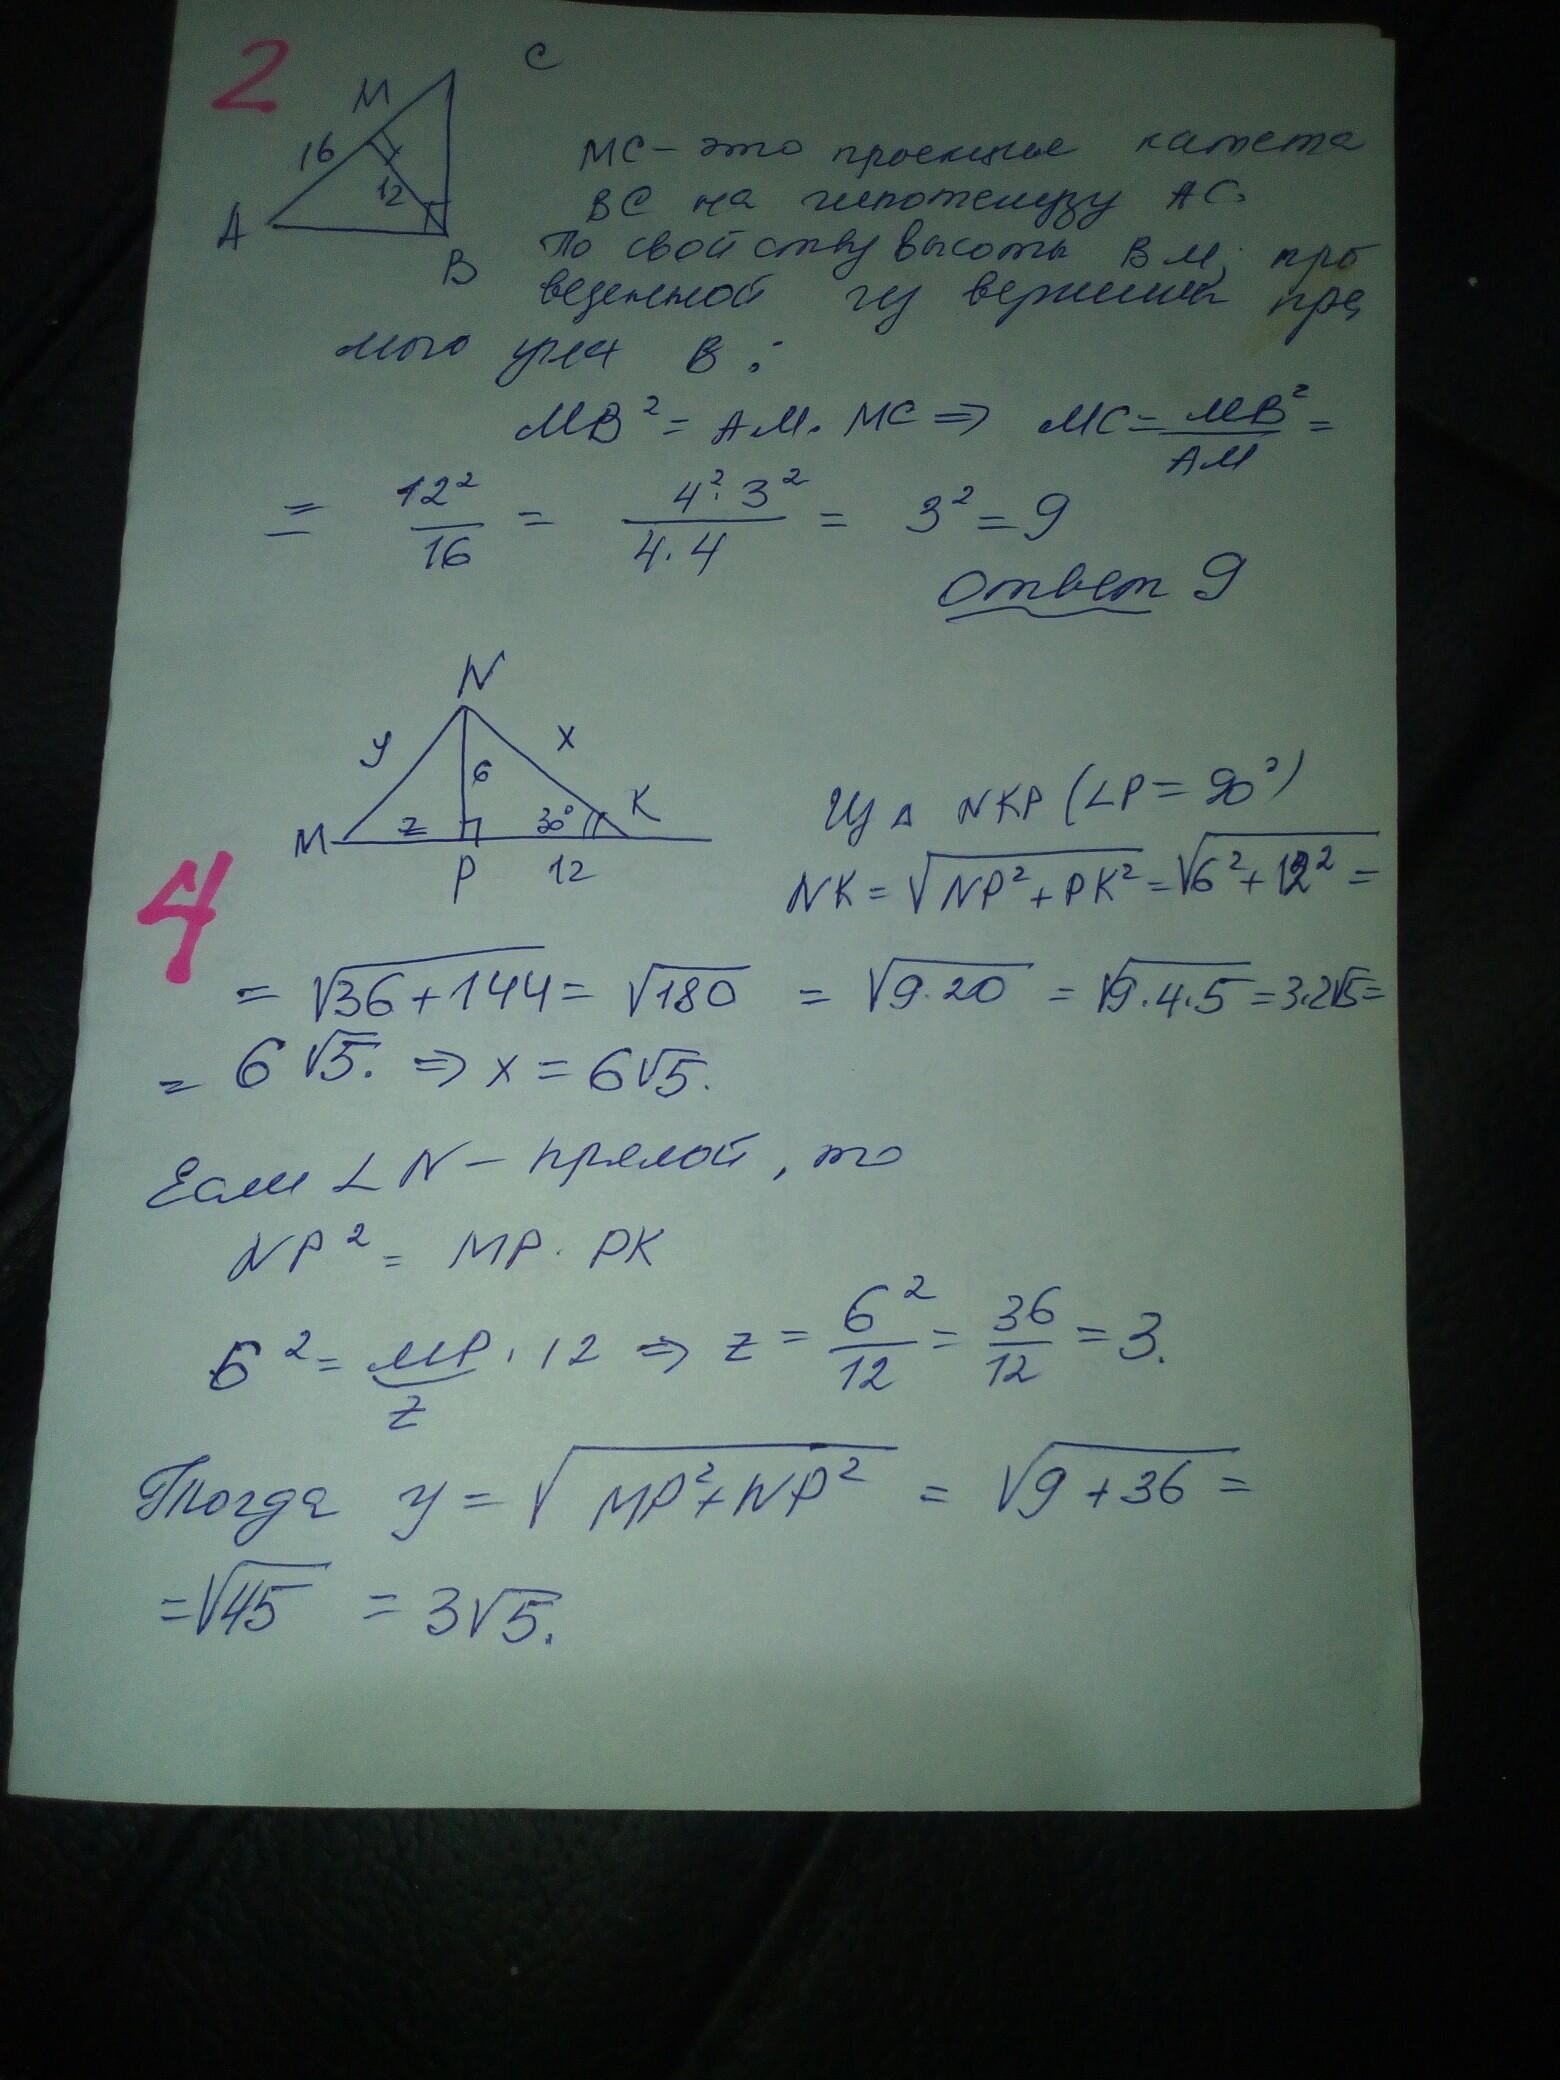 2
C
M
16
12
A
B
MC - это проекция катета
BC на гипотенузу AC.
По свойству высоты BM, про
веденной из вершины пря
мого угла B:
MB² = AM · MC ⇒ MC = MB²/AM =
= 12²/16 = 4²·3²/4·4 = 3² = 9
Ответ 9
N
y
x
6
K
M
z
30°
P
12
4
Из △ NKP (∠P = 90°)
NK = √NP² + PK² = √6² + 12² =
= √36 + 144 = √180 = √9·20 = √9·4·5 = 3·2√5 =
= 6√5. ⇒ x = 6√5.
Если ∠N - прямой, то
NP² = MP · PK
6² = MP · 12 ⇒ z = 6²/12 = 36/12 = 3.
z
Тогда y = √MP² + NP² = √9 + 36 =
= √45 = 3√5.